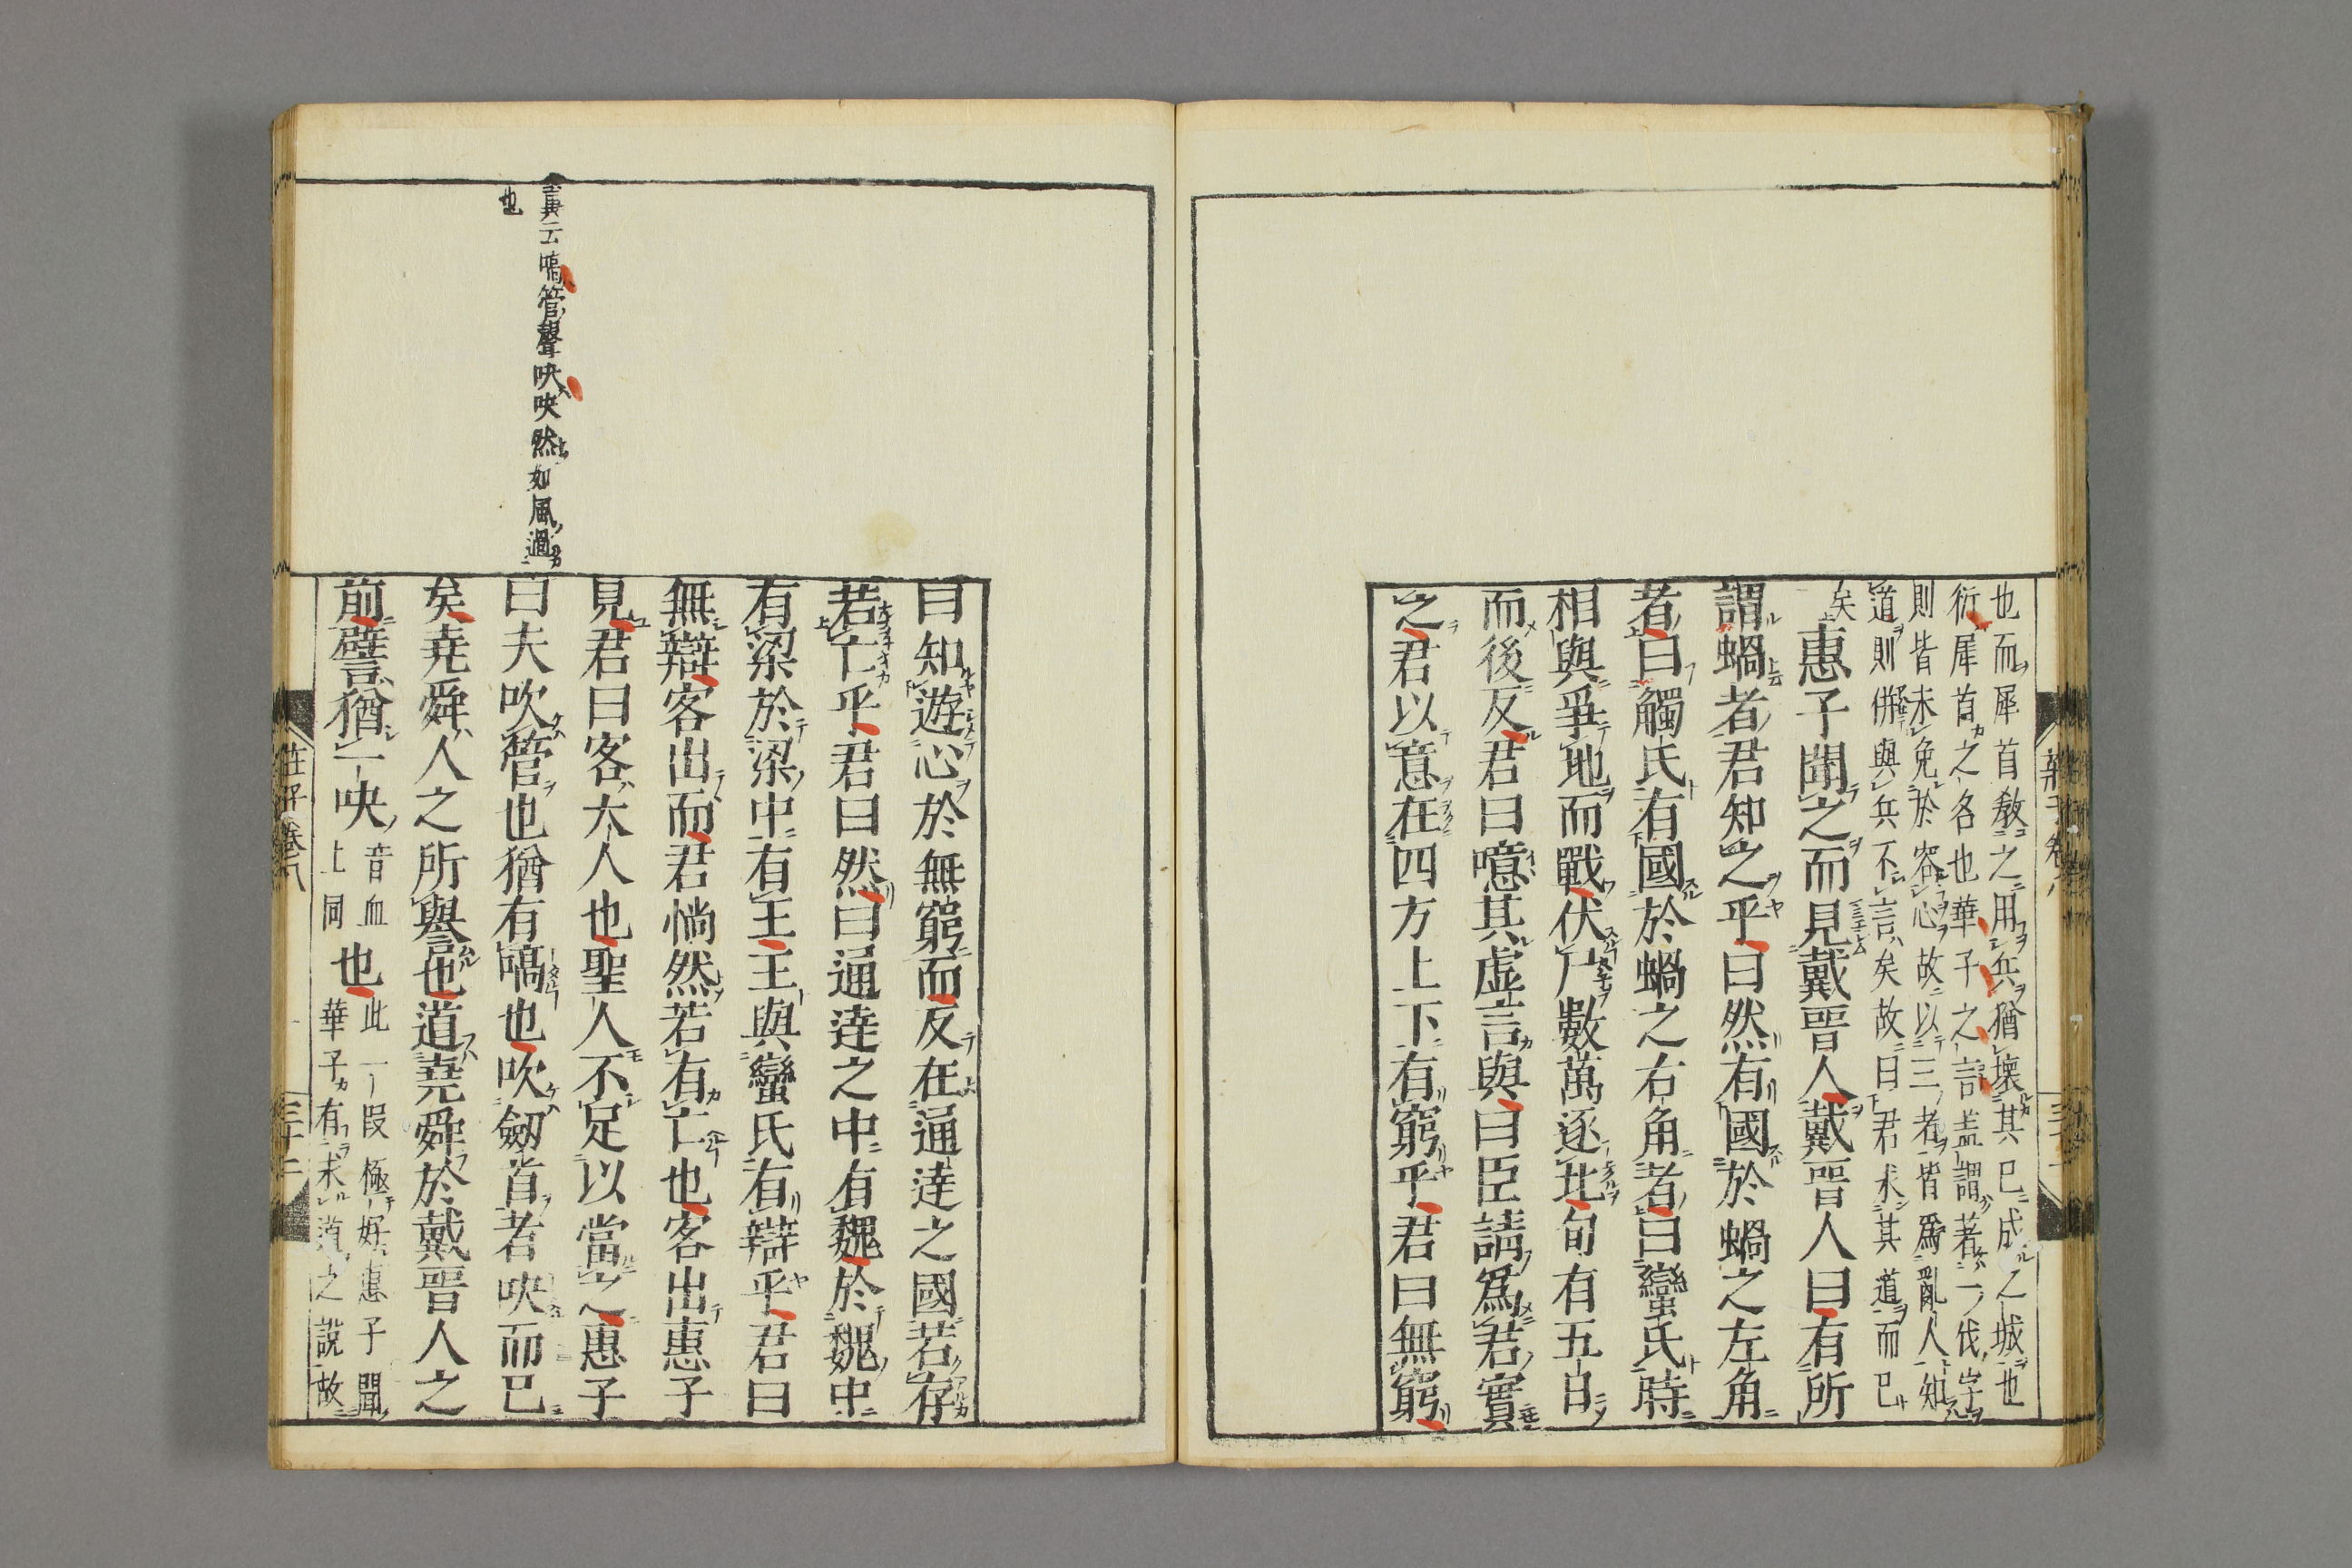 也而犀首教之用兵猶壞其已成之城也
衍犀首之名也華子之言盖謂著一伐字
則皆未免於容心故以三者皆爲亂人知
道則併與兵不言矣故曰君求其道而已
矣惠子聞之而見戴晉人戴晉人曰有所
謂蝸者君知之乎曰然有國於蝸之左角
者曰觸氏有國於蝸之右角者曰蠻氏時
相與爭地而戰伏尸數萬逐北旬有五日
而後反君曰噫其虛言與曰臣請爲君實
之君以意在四方上下有窮乎君曰無窮
曰知遊心於無窮而反在通達之國若存
若亡乎君曰然曰通達之中有魏於魏中
有梁於梁中有王王與蠻氏有辯乎君曰
無辯客出而君惝然若有亡也客出惠子
見君曰客大人也聖人不足以當之惠子
曰夫吹管也猶有嗃也吹劔首者吷而已
矣堯舜人之所譽也道堯舜於戴晉人之
前譬猶一吷音血上同也此一段極好惠子聞
華子有求道之說故
云嗃管聲吷吷然如風過
也
莊子卷八
三十二